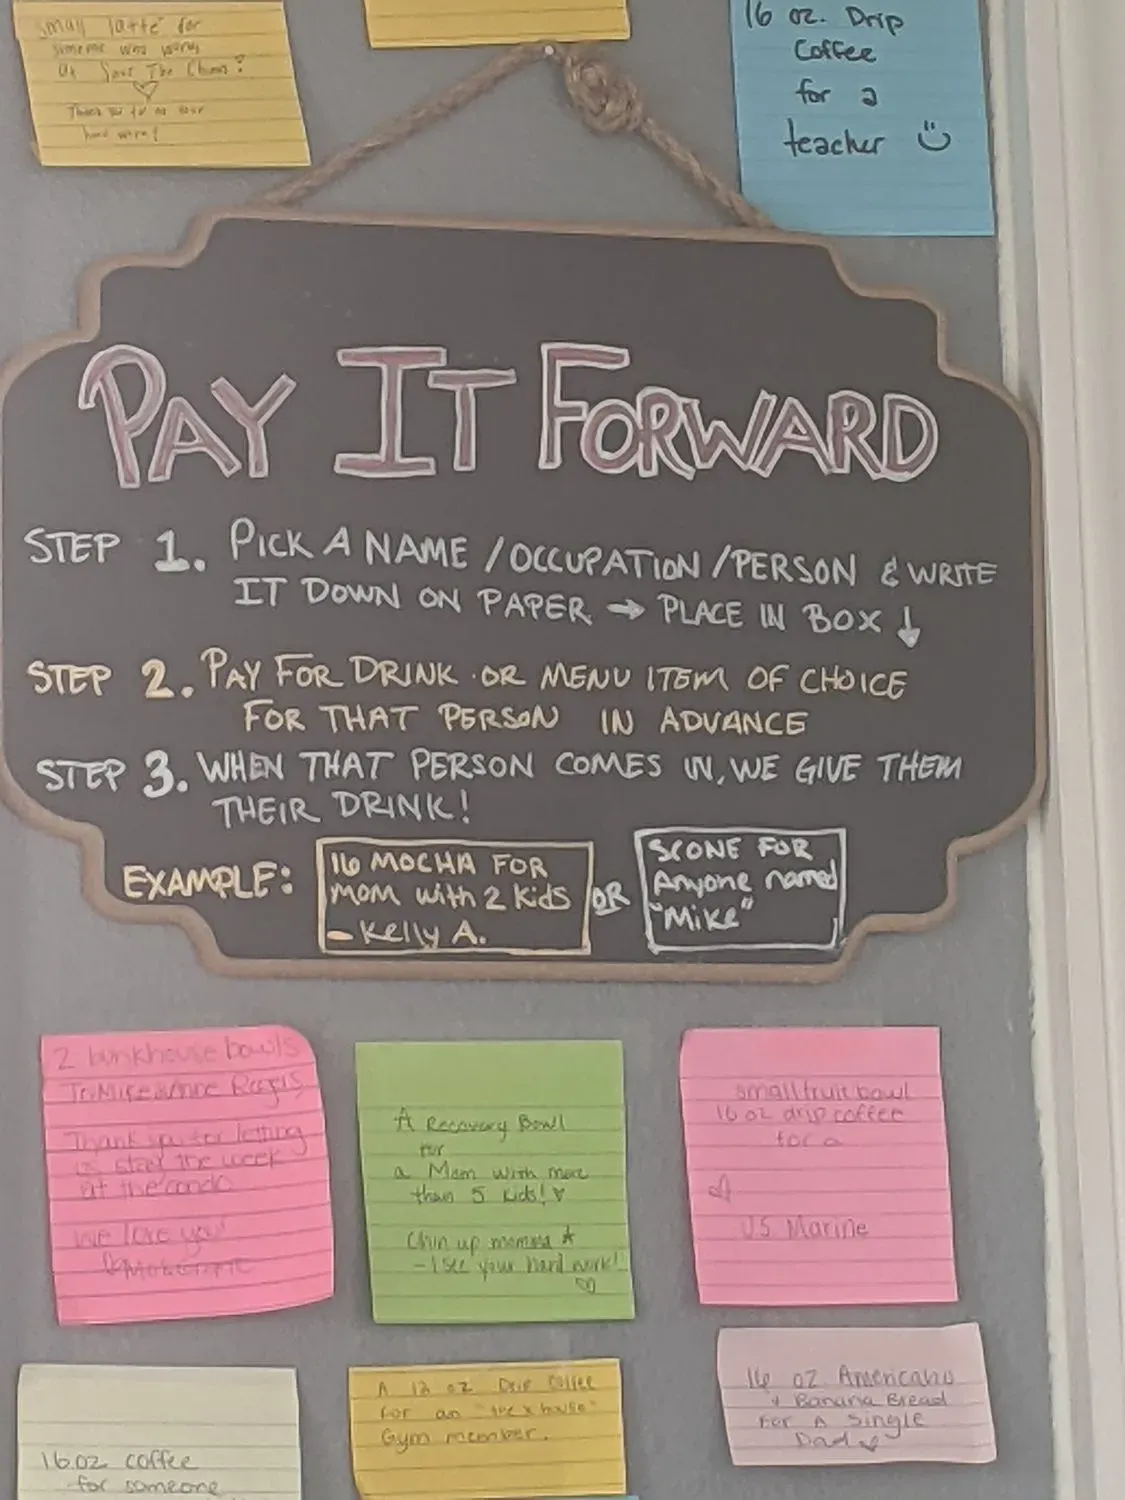 small latte for
someone who works
at Save The Chimps!
Thank you for all your
hard work!
16 oz. Drip
Coffee
for a
teacher
PAY IT FORWARD
STEP 1. PICK A NAME / OCCUPATION / PERSON & WRITE
IT DOWN ON PAPER → PLACE IN BOX ↓
STEP 2. PAY FOR DRINK OR MENU ITEM OF CHOICE
FOR THAT PERSON IN ADVANCE
STEP 3. WHEN THAT PERSON COMES IN, WE GIVE THEM
THEIR DRINK!
EXAMPLE:
16 MOCHA FOR
MOM with 2 Kids
- Kelly A.
OR
SCONE FOR
Anyone named
"Mike"
2 bunkhouse bowls
To Mike & Anne
Thank you for letting
us stay the week
at the condo
we love you!
A Recovery Bowl
for
a Mom with more
than 5 kids!
Chin up momma
- I see your hard work!
small fruit bowl
16 oz drip coffee
for a
US Marine
16 oz coffee
for someone
A 12 oz Drip Coffee
for an
Gym member.
16 oz Americano
+ Banana Bread
For A Single
Dad